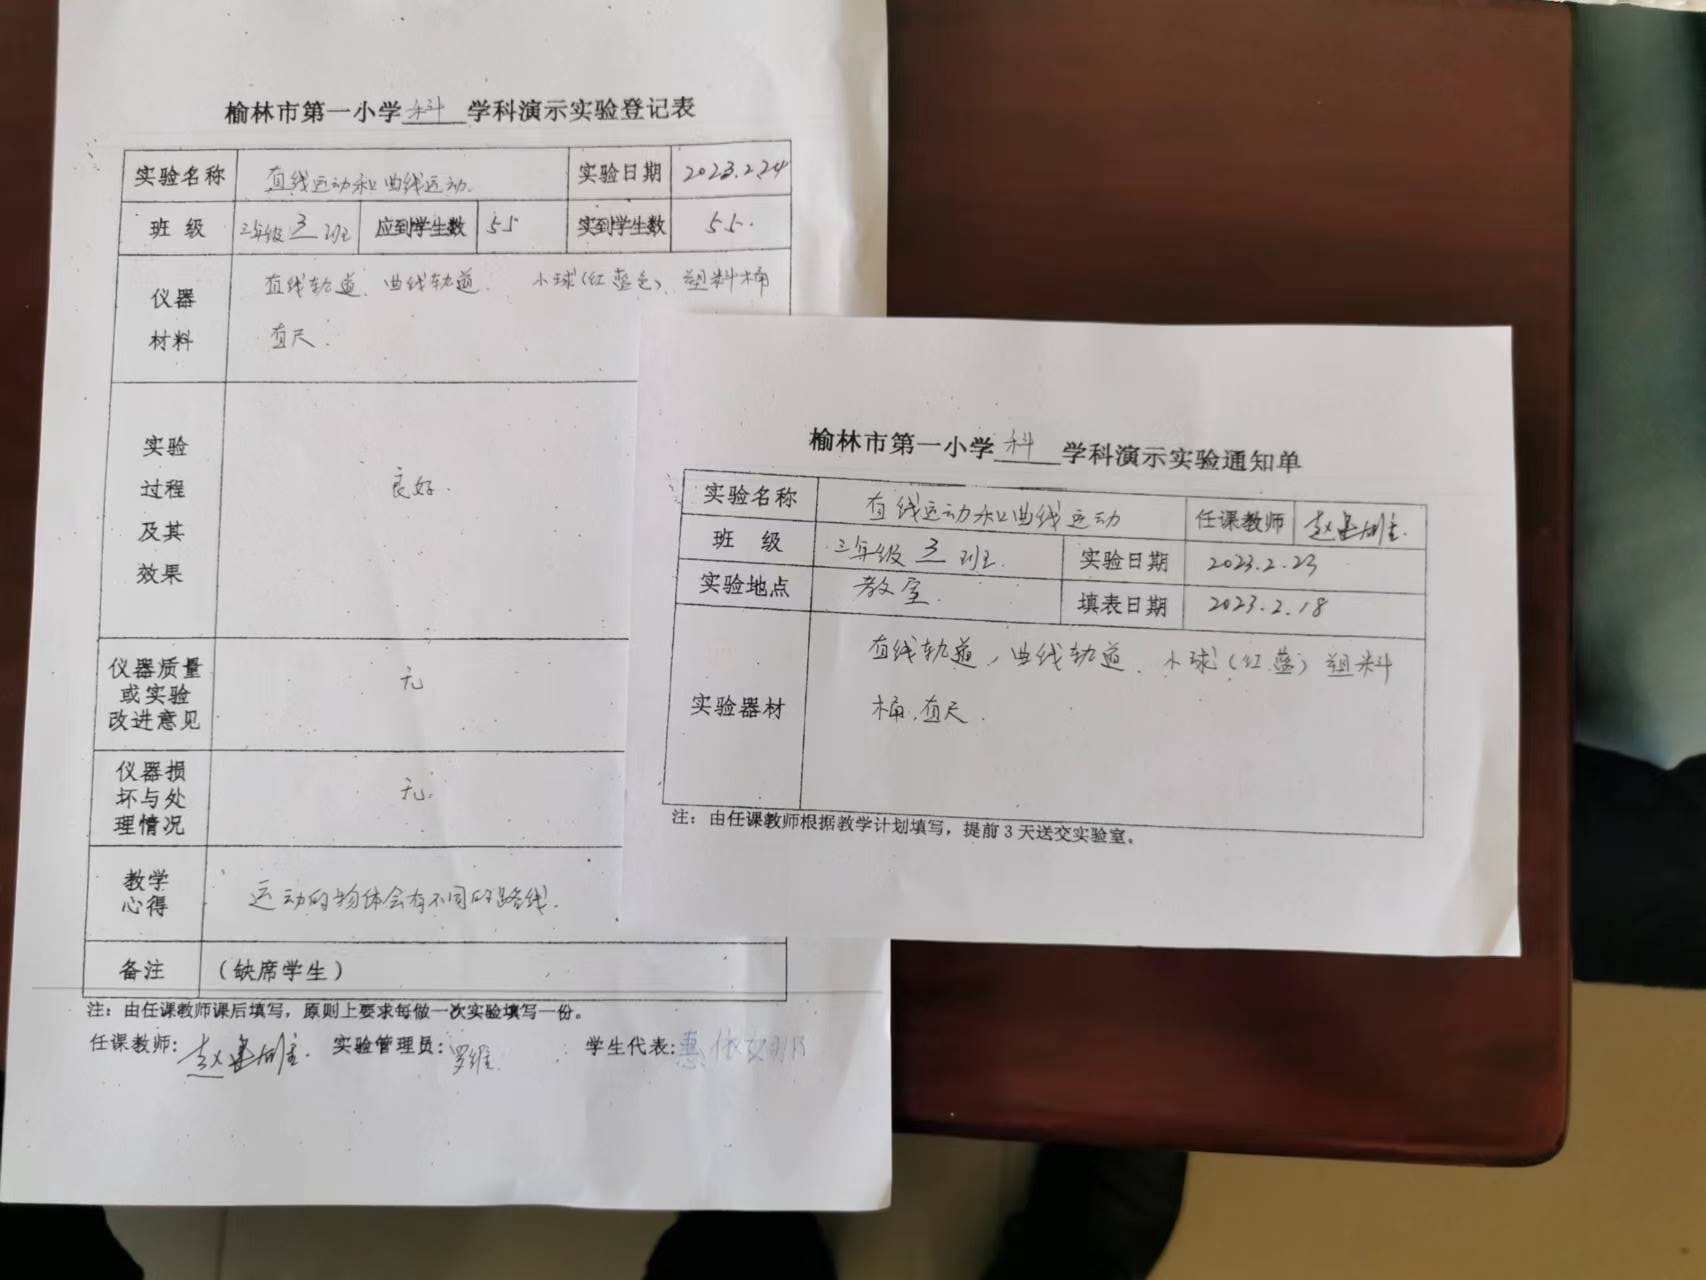 榆林市第一小学 科 学科演示实验登记表
实验名称 直线运动和曲线运动. 实验日期 2023.2.24
班 级 三年级 3 班 应到学生数 55 实到学生数 55.
仪器 直线轨道、曲线轨道、 小球(红蓝色)、塑料桶
材料 直尺.
实验
过程 良好.
及其
效果
仪器质量
或实验 无
改进意见
仪器损
坏与处 无.
理情况
教学
心得 运动的物体会有不同的路线.
备注 (缺席学生)
注：由任课教师课后填写，原则上要求每做一次实验填写一份。
任课教师: 实验管理员: 罗维 学生代表:
榆林市第一小学 科 学科演示实验通知单
实验名称 直线运动和曲线运动 任课教师
班 级 三年级 3 班. 实验日期 2023.2.23
实验地点 教室. 填表日期 2023.2.18
直线轨道，曲线轨道、小球(红蓝)塑料
实验器材 桶、直尺.
注：由任课教师根据教学计划填写，提前3天送交实验室。